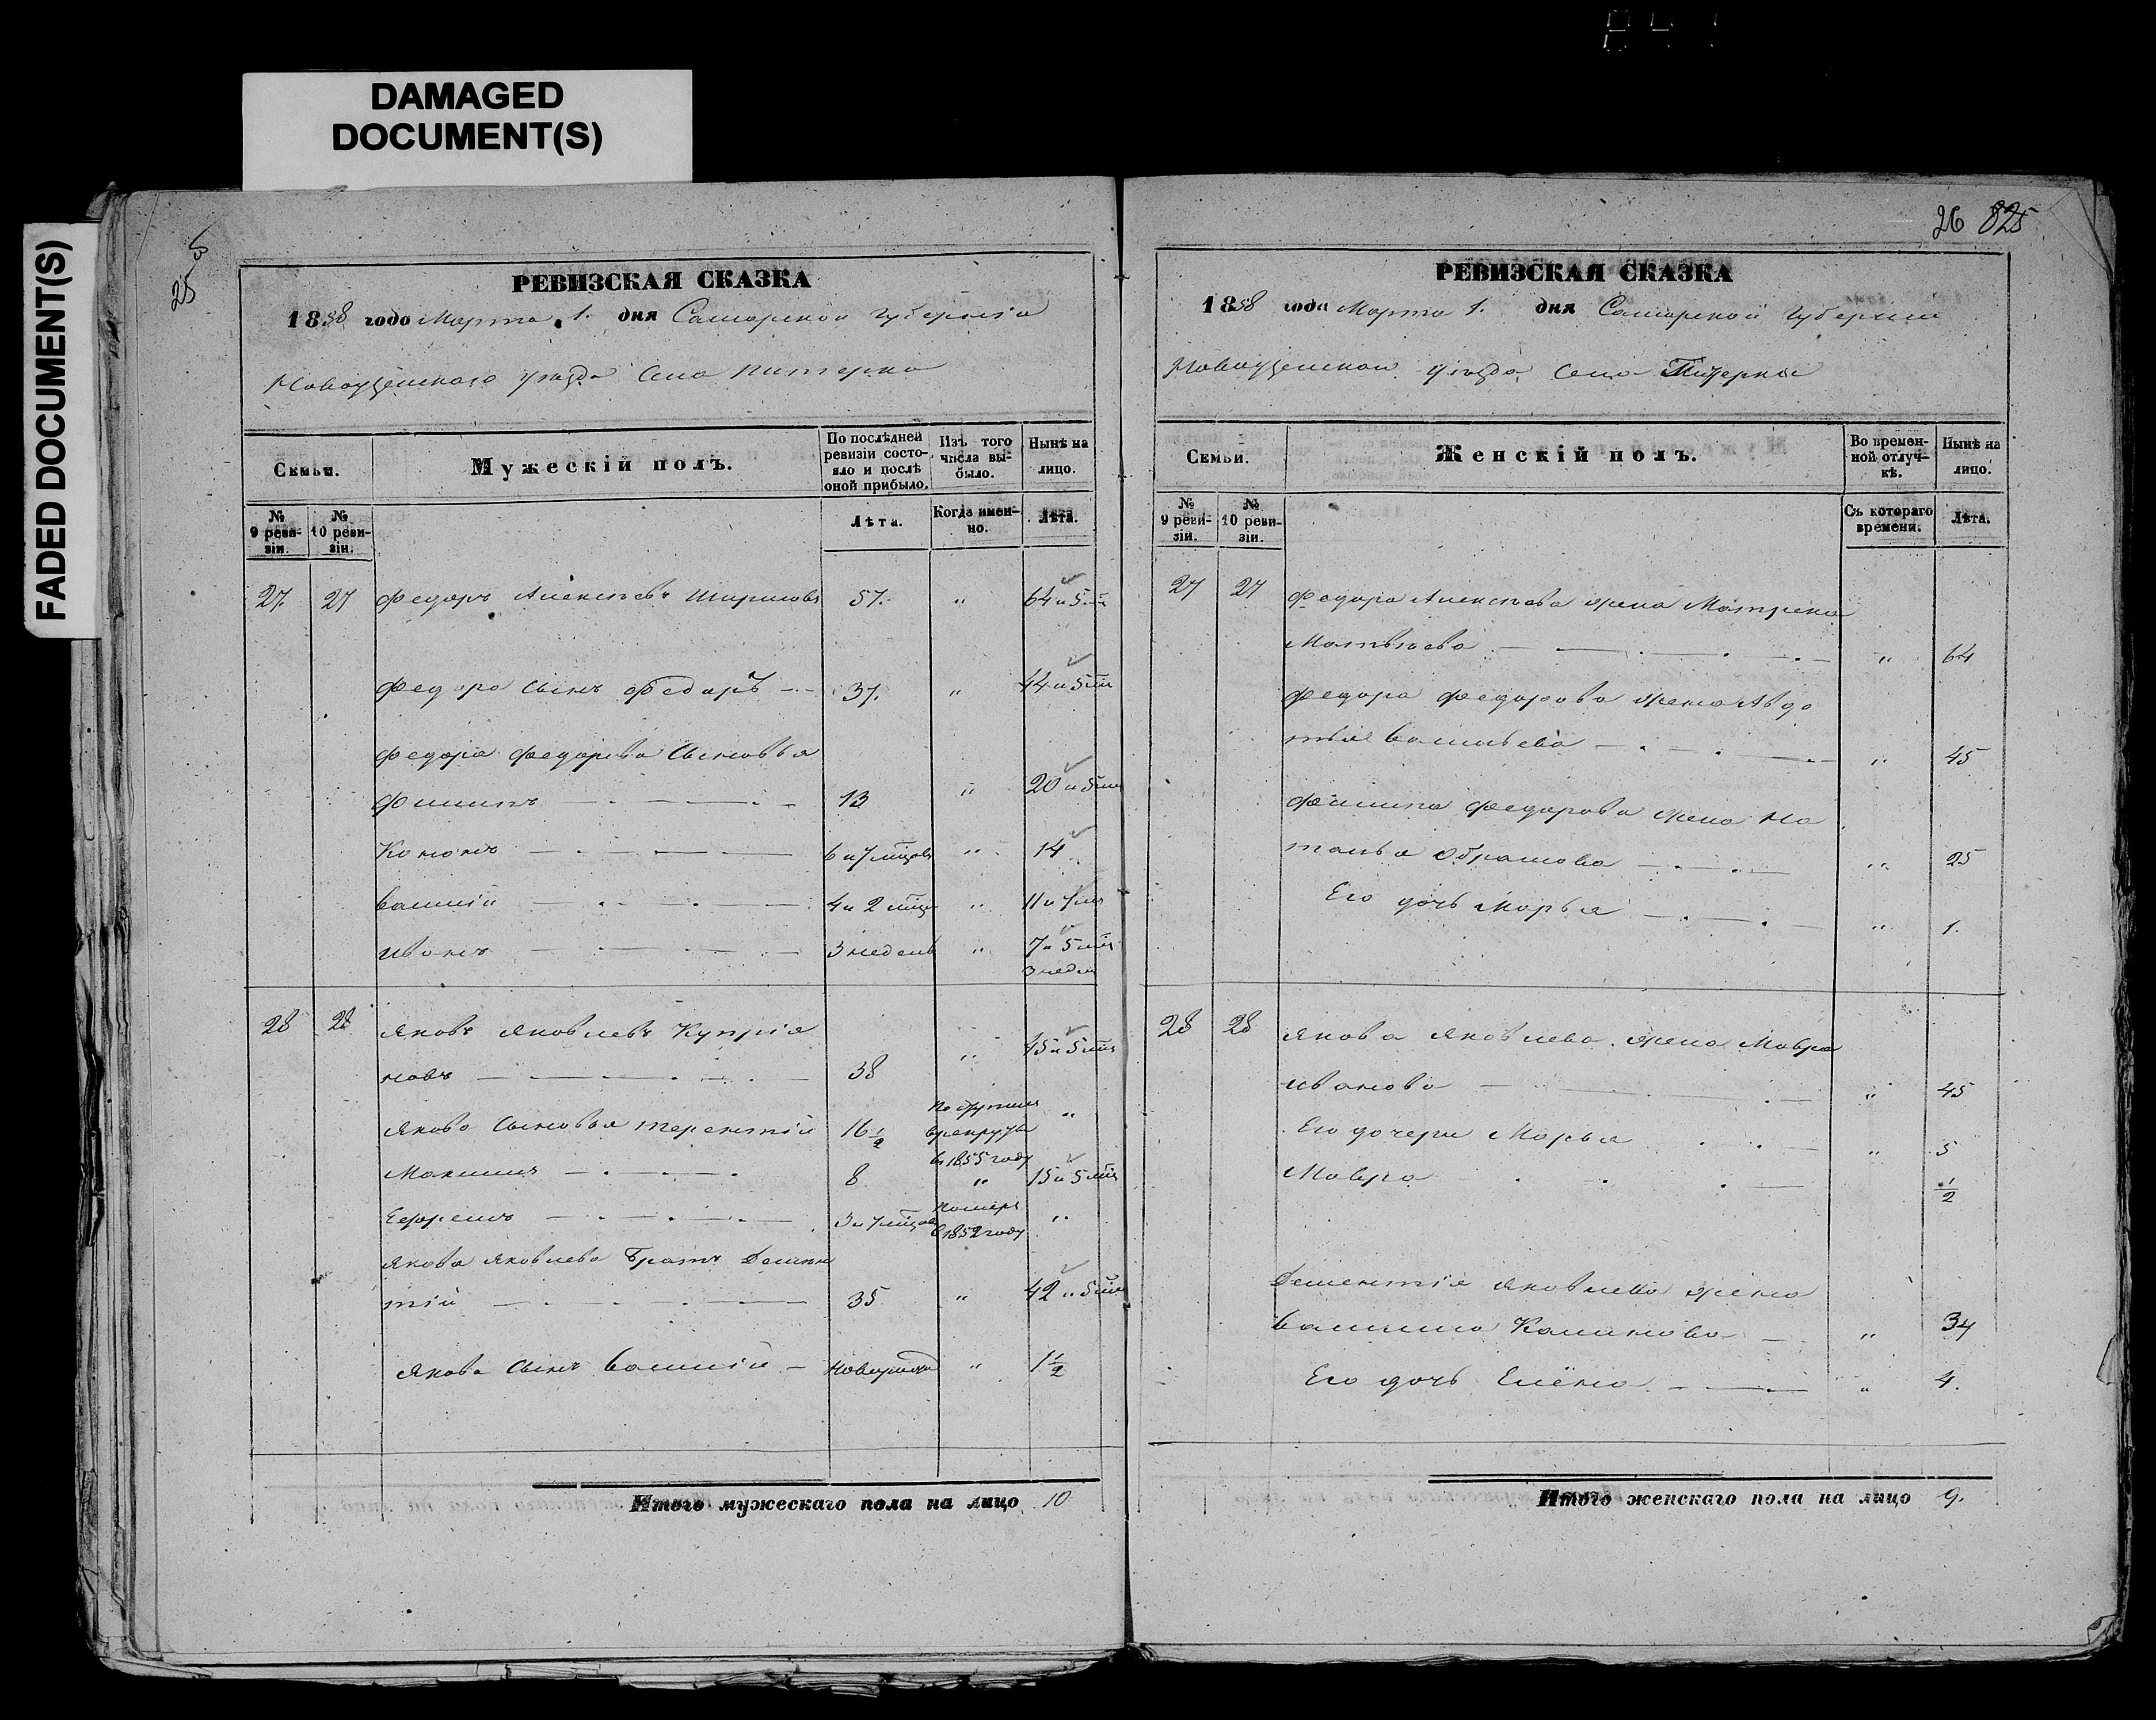 DAMAGED
DOCUMENT(S)
FADED DOCUMENT(S)
25
РЕВИЗСКАЯ СКАЗКА
1858 года Марта 1. дня Самарской губернiи
Новоузенскаго уѣзда Села Питерка
Семьи.
Мужескiй полъ.
По послѣдней
ревизiи состо-
яло и послѣ
оной прибыло.
Изъ того
числа вы-
было.
Нынѣ на
лицо.
№
9 реви-
зiи.
№
10 реви-
зiи.
Лѣта.
Когда имен-
но.
Лѣта.
27. 27 Федоръ Алексѣевъ Шириловъ 57. „ 64 и 5 мѣ
Федора сынъ Федаръ 37. „ 44 и 5 мѣ
Федора Федорова Сыновья
Филипъ 13 „ 20 и 5 мѣ
Кононъ 6 и 7 мѣцовъ „ 14
Василiй 4 и 2 мѣц „ 11 и 7 мѣ
Иванъ 3 недель „ 7 и 5 мѣ
3 недел
28 28 Яковъ Яковлевъ Купрiя
новъ 38 „ 45 и 5 мѣ
Якова Сыновья Терентiй 16 1/2 „
в рекруты
в 1855 году
Максимъ 8 „ 15 и 5 мѣ
Ефремъ 3 и 7 мѣцов „
Померъ
в 1852 году
Якова Яковлева Братъ Демен
тiй 35 „ 42 и 5 мѣ
Якова Сынъ Василiй новорожд „ 1 1/2
Итого мужескаго пола на лицо 10
26 825
РЕВИЗСКАЯ СКАЗКА
1858 года Марта 1. дня Самарской губернiи
Новоузенскаи уѣзда Села Питерки
Семьи.
Женскiй полъ.
Во времен-
ной отлуч-
кѣ.
Нынѣ на
лицо.
№
9 реви-
зiи.
№
10 реви-
зiи.
Съ котораго
времени.
Лѣта.
27 27 Федора Алексѣева жена Матрена
Матвѣева „ 64
Федора Федорова жена Авдо
тья Васильева „ 45
Филипа Федорова жена На
талья Абрамова „ 25
Его дочь Марья „ 1.
28 28 Якова Яковлева жена Мавра
Иванова „ 45
Его дочери Марья „ 5
Мавра 1/2
Дементiя Яковлева жена
Василиса Калинова „ 34
Его дочь Елёна „ 4.
Итого женскаго пола на лицо 9.